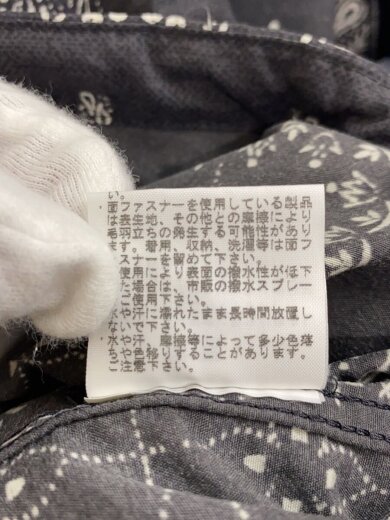 い。
・面ファスナーを使用している製品
は表生地、その他との摩擦により
毛羽立ちの発生する可能性があり
ます。着用、収納、洗濯等は面フ
ァスナーを留めて下さい。
使用により表面の撥水性が低下
た場合は、市販の撥水スプレー
ご使用下さい。
水や汗に濡れたまま長時間放置し
ないで下さい。
・水や汗、摩擦等によって多少色落
ちや色移りすることがあります。
ご注意下さい。